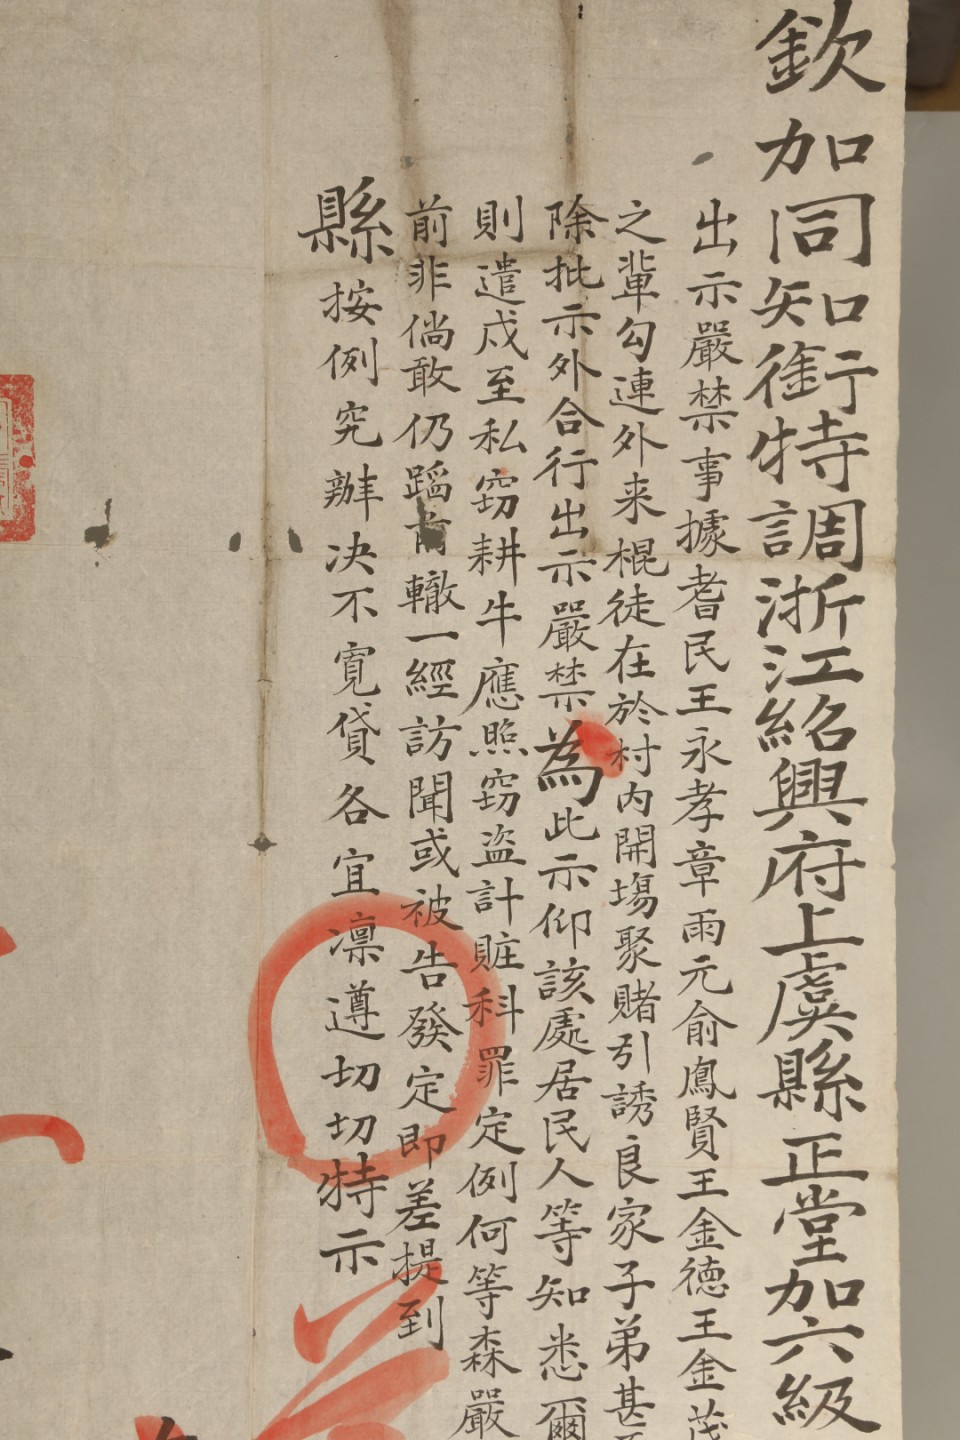 欽加同知銜特調浙江紹興府上虞縣正堂加六級
出示嚴禁事據耆民王永孝章雨元俞鳳賢王金德王金茂
之輩勾連外来棍徒在於村内開塲聚賭引誘良家子弟甚
除批示外合行出示嚴禁為此示仰該處居民人等知悉爾
則遣戍至私窃耕牛應照窃盗計賍科罪定例何等森嚴
前非倘敢仍蹈前轍一經訪聞或被告發定即差提到
縣按例究辦决不寬貸各宜凛遵切切特示